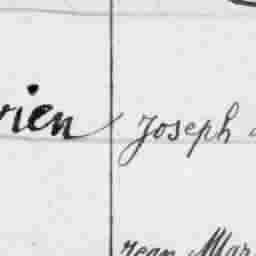 rien Joseph
Jean Mar